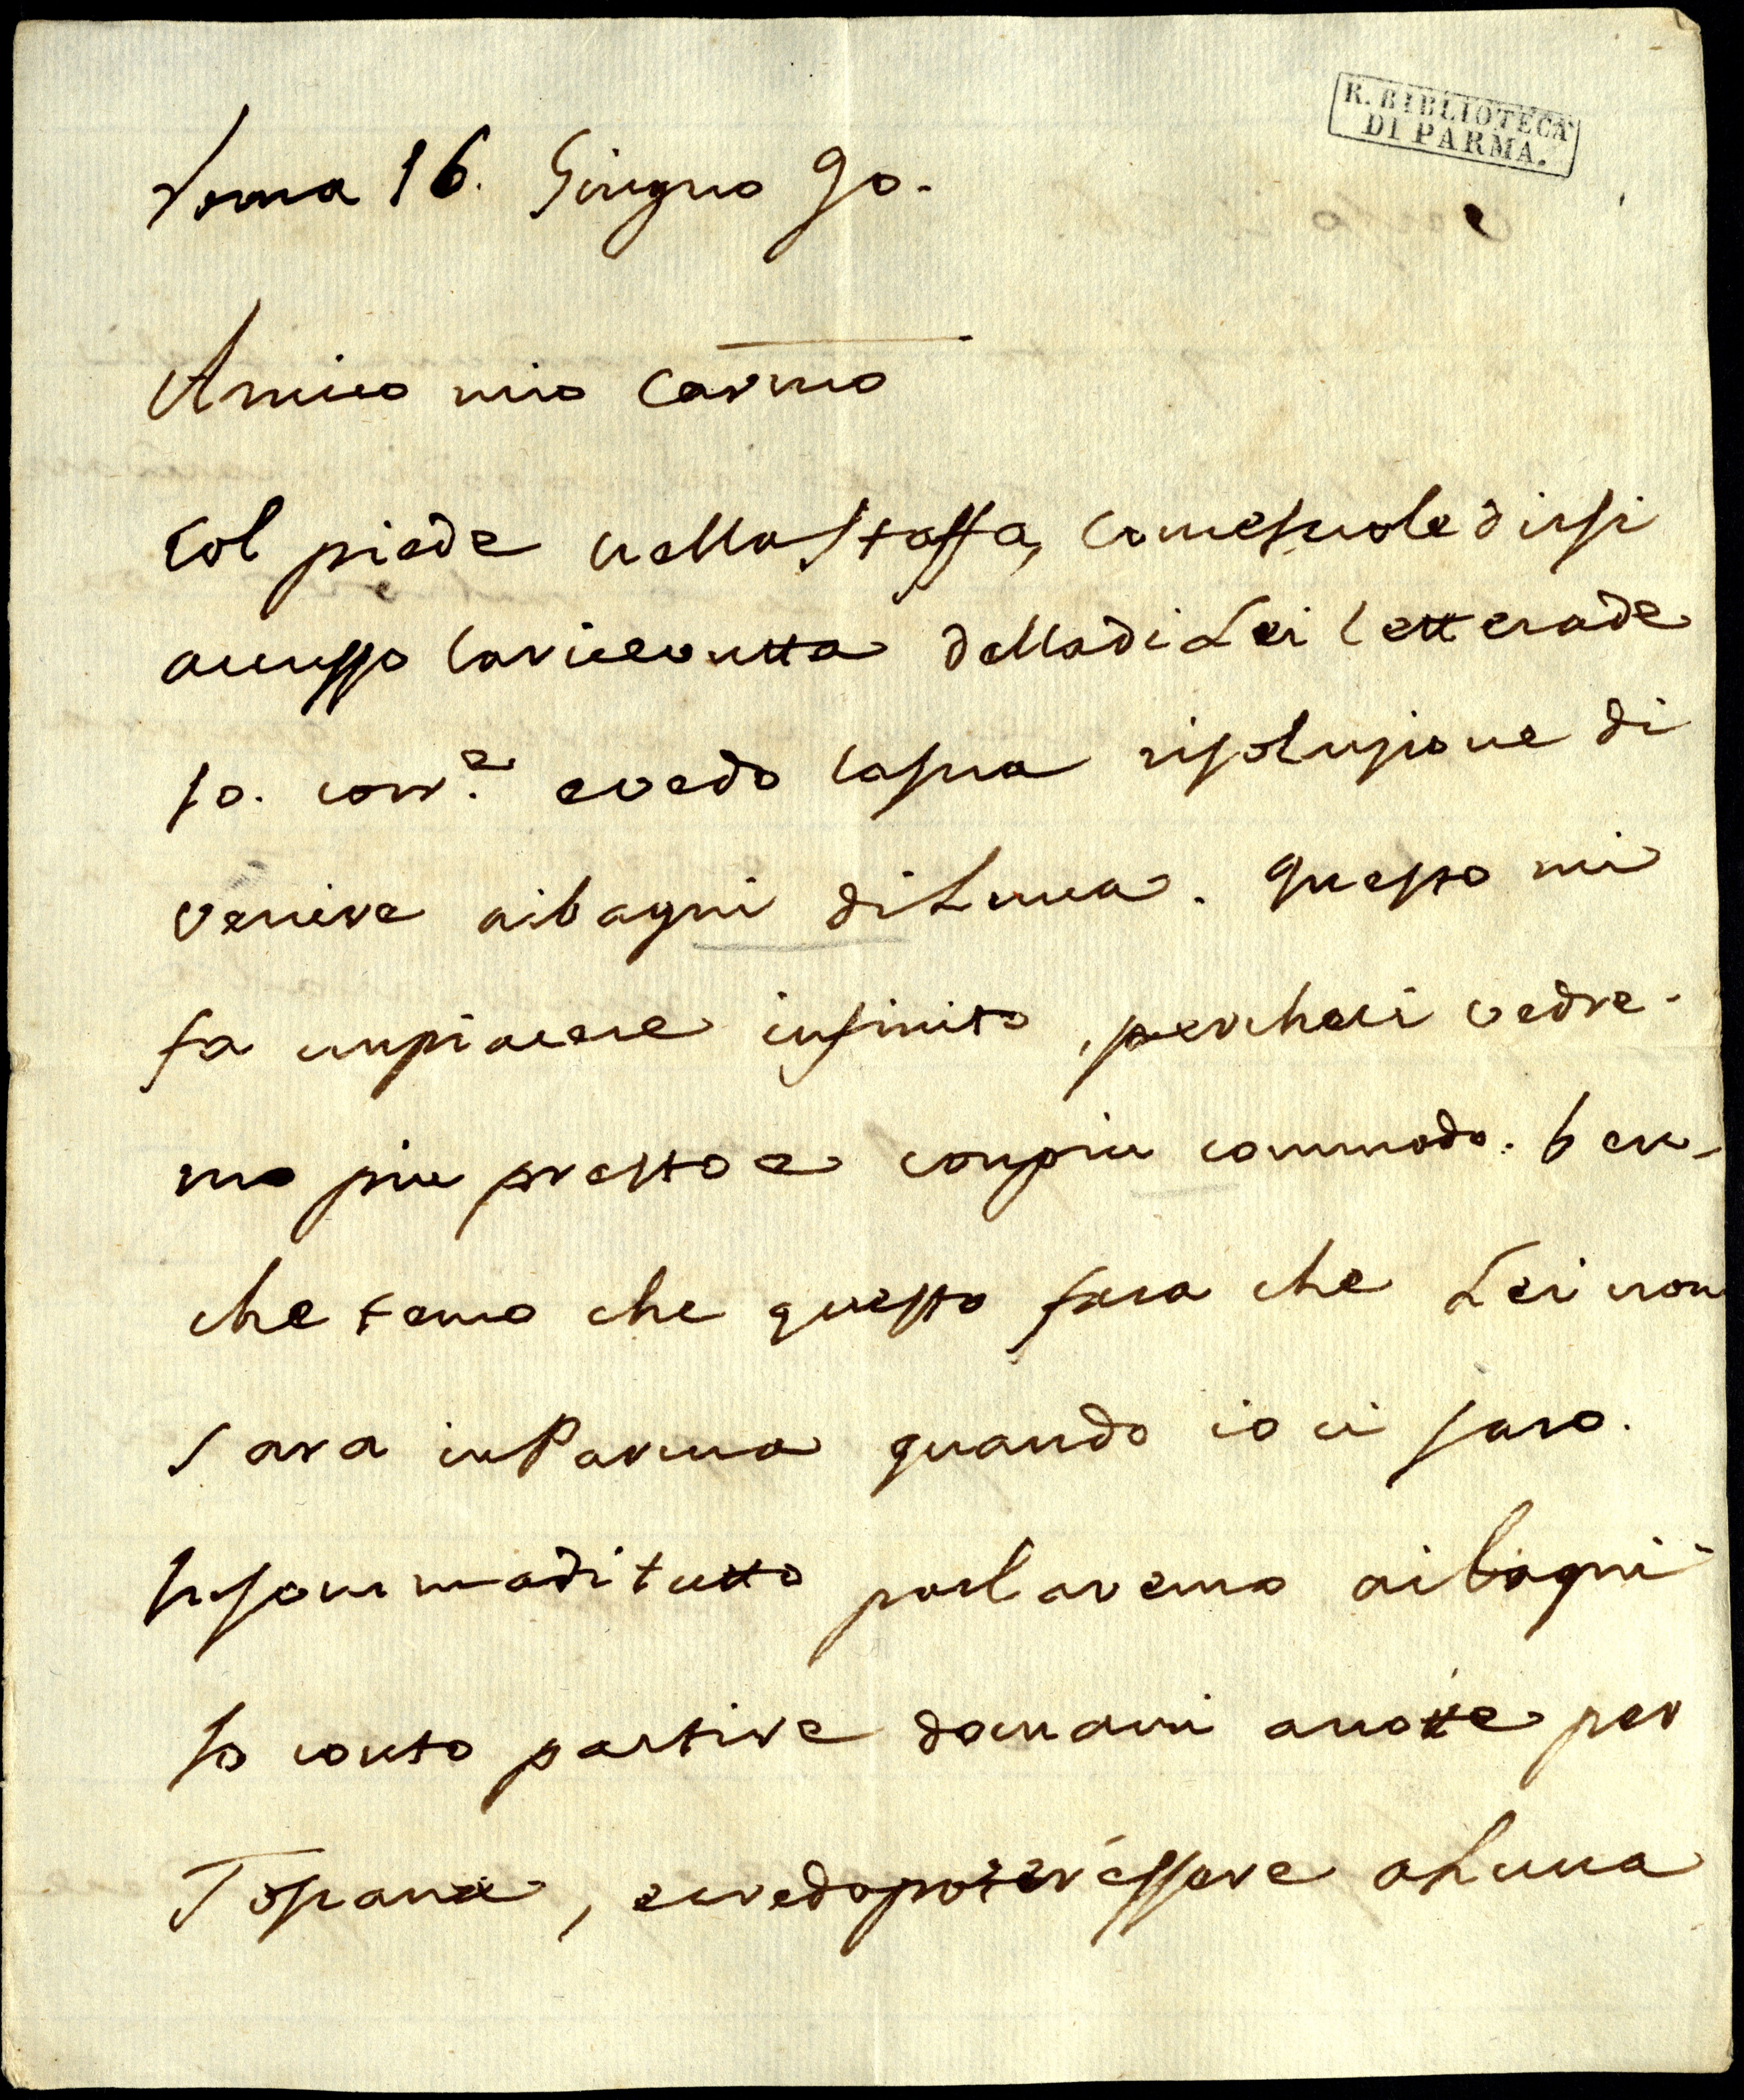 R. BIBLIOTECA
DI PARMA.
Roma 16. Giugno 90.
Amico mio Carmo
Col piede nella staffa, come suole dirsi
accusso la ricevutta della di Lei lettera de
10. corr.e e vedo la sua risoluzione di
venire ai bagni di Lucca. Questo mi
fa un piacere infinito, perche ci vedre-
mo piu presto e con piu commodo. ben-
che temo che questo fara che Lei non
sara in Parma quando io ci saro.
Insomma di tutto parlaremo ai bagni
Io conto partire domani a notte per
Toscana, e credo poter essere a Lucca